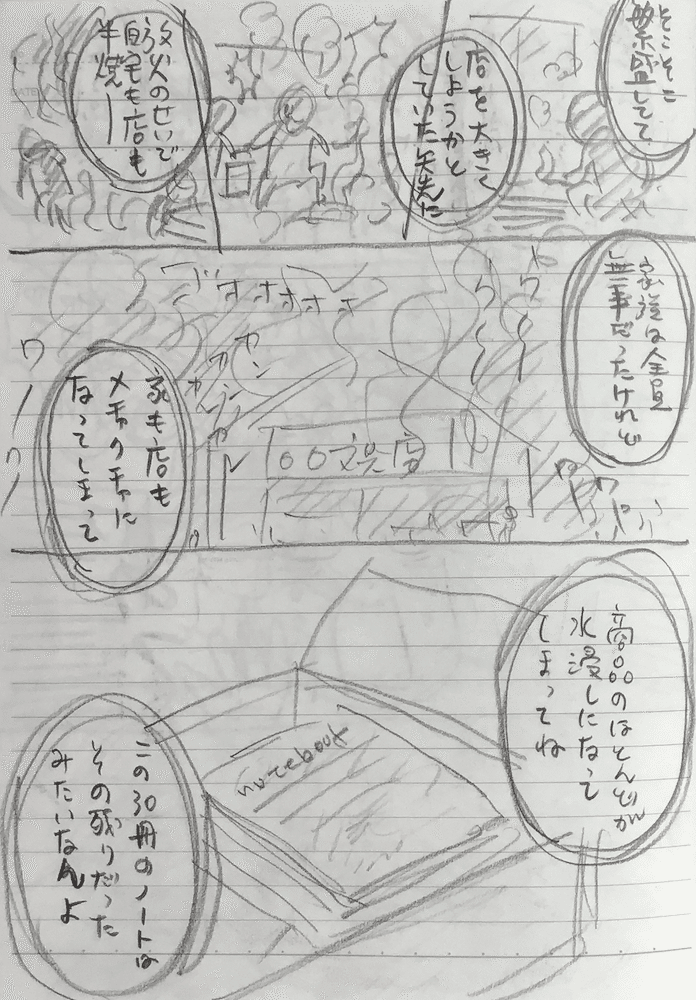 そこそこ
繁盛してて
店を大きく
しようかと
していた矢先に
放火のせいで
自宅も店も
半焼ー
家族は全員
無事だったけれど
ウー
ウー
ゴオオオオオ
カン
カン
カン
〇〇文具店
家も店も
メチャクチャに
なってしまって
ワー
ワー
商品のほとんどが
水浸しになって
しまってね
notebook
この30冊のノートは
その残りだった
みたいなんよ